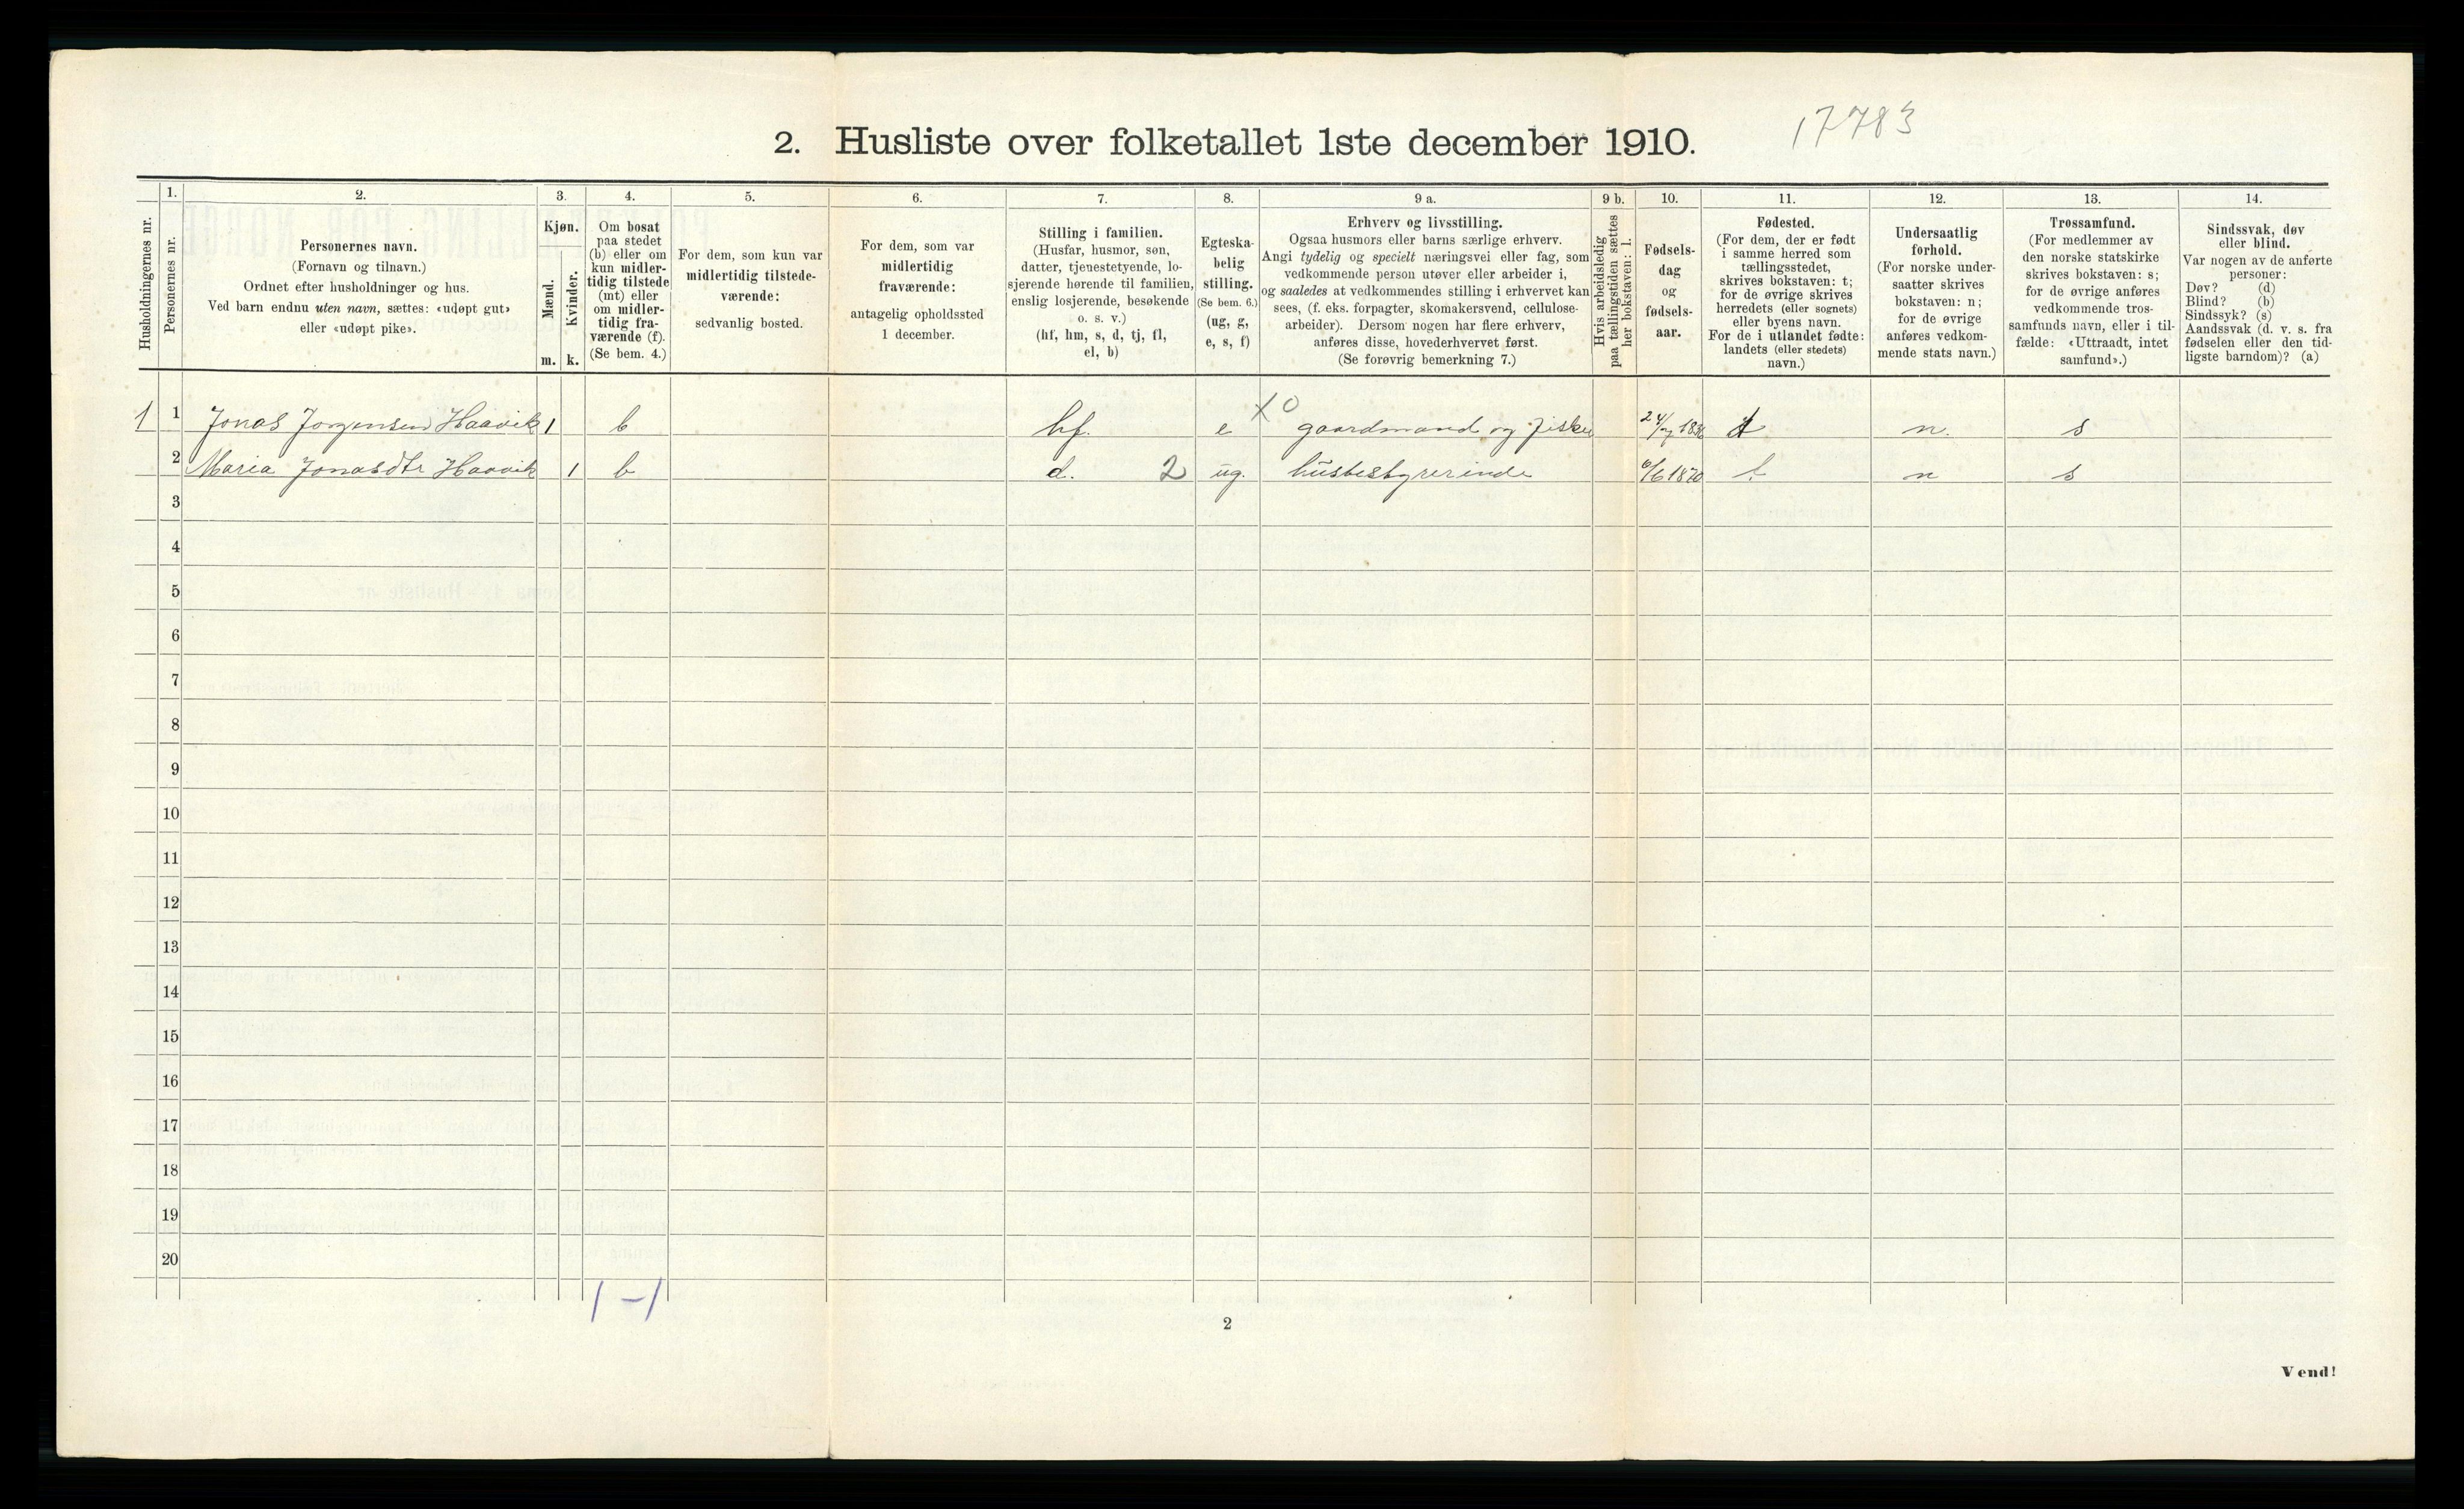 17783
2. Husliste over folketallet 1ste december 1910.
1. 2. 3. 4. 5. 6. 7. 8. 9 a. 9 b. 10. 11. 12. 13. 14.
Husholdningernes nr.
Personernes nr.
Personernes navn.
(Fornavn og tilnavn.)
Ordnet efter husholdninger og hus.
Ved barn endnu uten navn, sættes: «udøpt gut»
eller «udøpt pike».
Kjøn.
Mænd.
Kvinder.
m. k.
Om bosat
paa stedet
(b) eller om
kun midler-
tidig tilstede
(mt) eller
om midler-
tidig fra-
værende (f).
(Se bem. 4.)
For dem, som kun var
midlertidig tilstede-
værende:
sedvanlig bosted.
For dem, som var
midlertidig
fraværende:
antagelig opholdssted
1 december.
Stilling i familien.
(Husfar, husmor, søn,
datter, tjenestetyende, lo-
sjerende hørende til familien,
enslig losjerende, besøkende
o. s. v.)
(hf, hm, s, d, tj, fl,
el, b)
Egteska-
belig
stilling.
(Se bem. 6.)
(ug, g,
e, s, f)
Erhverv og livsstilling.
Ogsaa husmors eller barns særlige erhverv.
Angi tydelig og specielt næringsvei eller fag, som
vedkommende person utøver eller arbeider i,
og saaledes at vedkommendes stilling i erhvervet kan
sees, (f. eks. forpagter, skomakersvend, cellulose-
arbeider). Dersom nogen har flere erhverv,
anføres disse, hovederhvervet først.
(Se forøvrig bemerkning 7.)
Hvis arbeidsledig
paa tællingstiden sættes
her bokstaven: l.
Fødsels-
dag
og
fødsels-
aar.
Fødested.
(For dem, der er født
i samme herred som
tællingsstedet,
skrives bokstaven: t;
for de øvrige skrives
herredets (eller sognets)
eller byens navn.
For de i utlandet fødte:
landets (eller stedets)
navn.)
Undersaatlig
forhold.
(For norske under-
saatter skrives
bokstaven: n;
for de øvrige
anføres vedkom-
mende stats navn.)
Trossamfund.
(For medlemmer av
den norske statskirke
skrives bokstaven: s;
for de øvrige anføres
vedkommende tros-
samfunds navn, eller i til-
fælde: «Uttraadt, intet
samfund».)
Sindssvak, døv
eller blind.
Var nogen av de anførte
personer:
Døv? (d)
Blind? (b)
Sindssyk? (s)
Aandssvak (d. v. s. fra
fødselen eller den tid-
ligste barndom)? (a)
1 1 Jonas Jorgensen Haavik 1 b hf. e X 0 gaardmand og fisker t n. s
2 Maria Jonasdtr Haavik 1 b d. 2 ug. husbestyrerinde 6/6 1870 t n s
3
4
5
6
7
8
9
10
11
12
13
14
15
16
17
18
19
20
1 - 1
2
Vend!